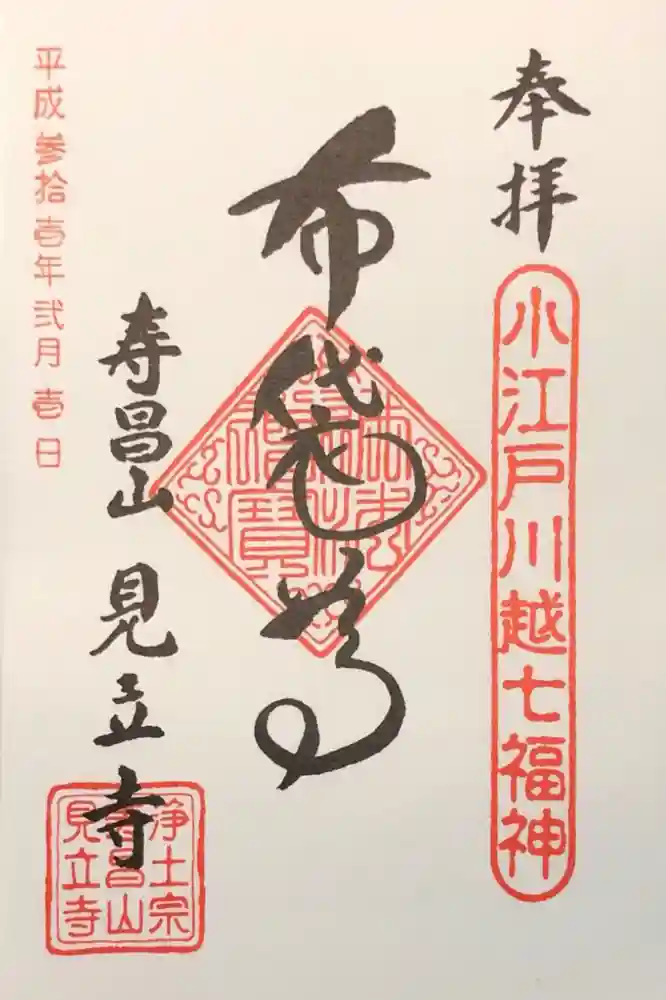 奉拝
小江戸川越七福神
布袋尊
佛法僧寶
寿昌山 見立寺
浄土宗
寿昌山
見立寺
平成参拾壱年弐月壱日